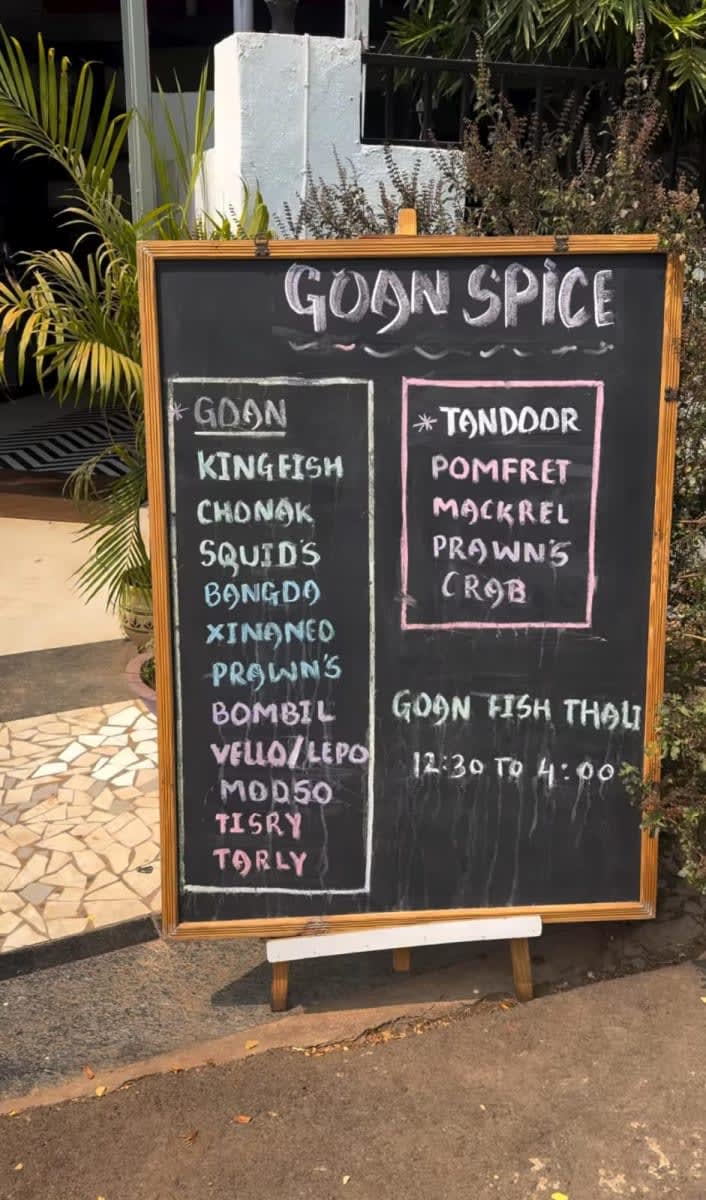 GOAN SPICE
* GOAN
KINGFISH
CHONAK
SQUID'S
BANGDA
XINANEO
PRAWN'S
BOMBIL
VELLO/LEPO
MODSO
TISRY
TARLY
* TANDOOR
POMFRET
MACKREL
PRAWN'S
CRAB
GOAN FISH THALI
12:30 TO 4:00